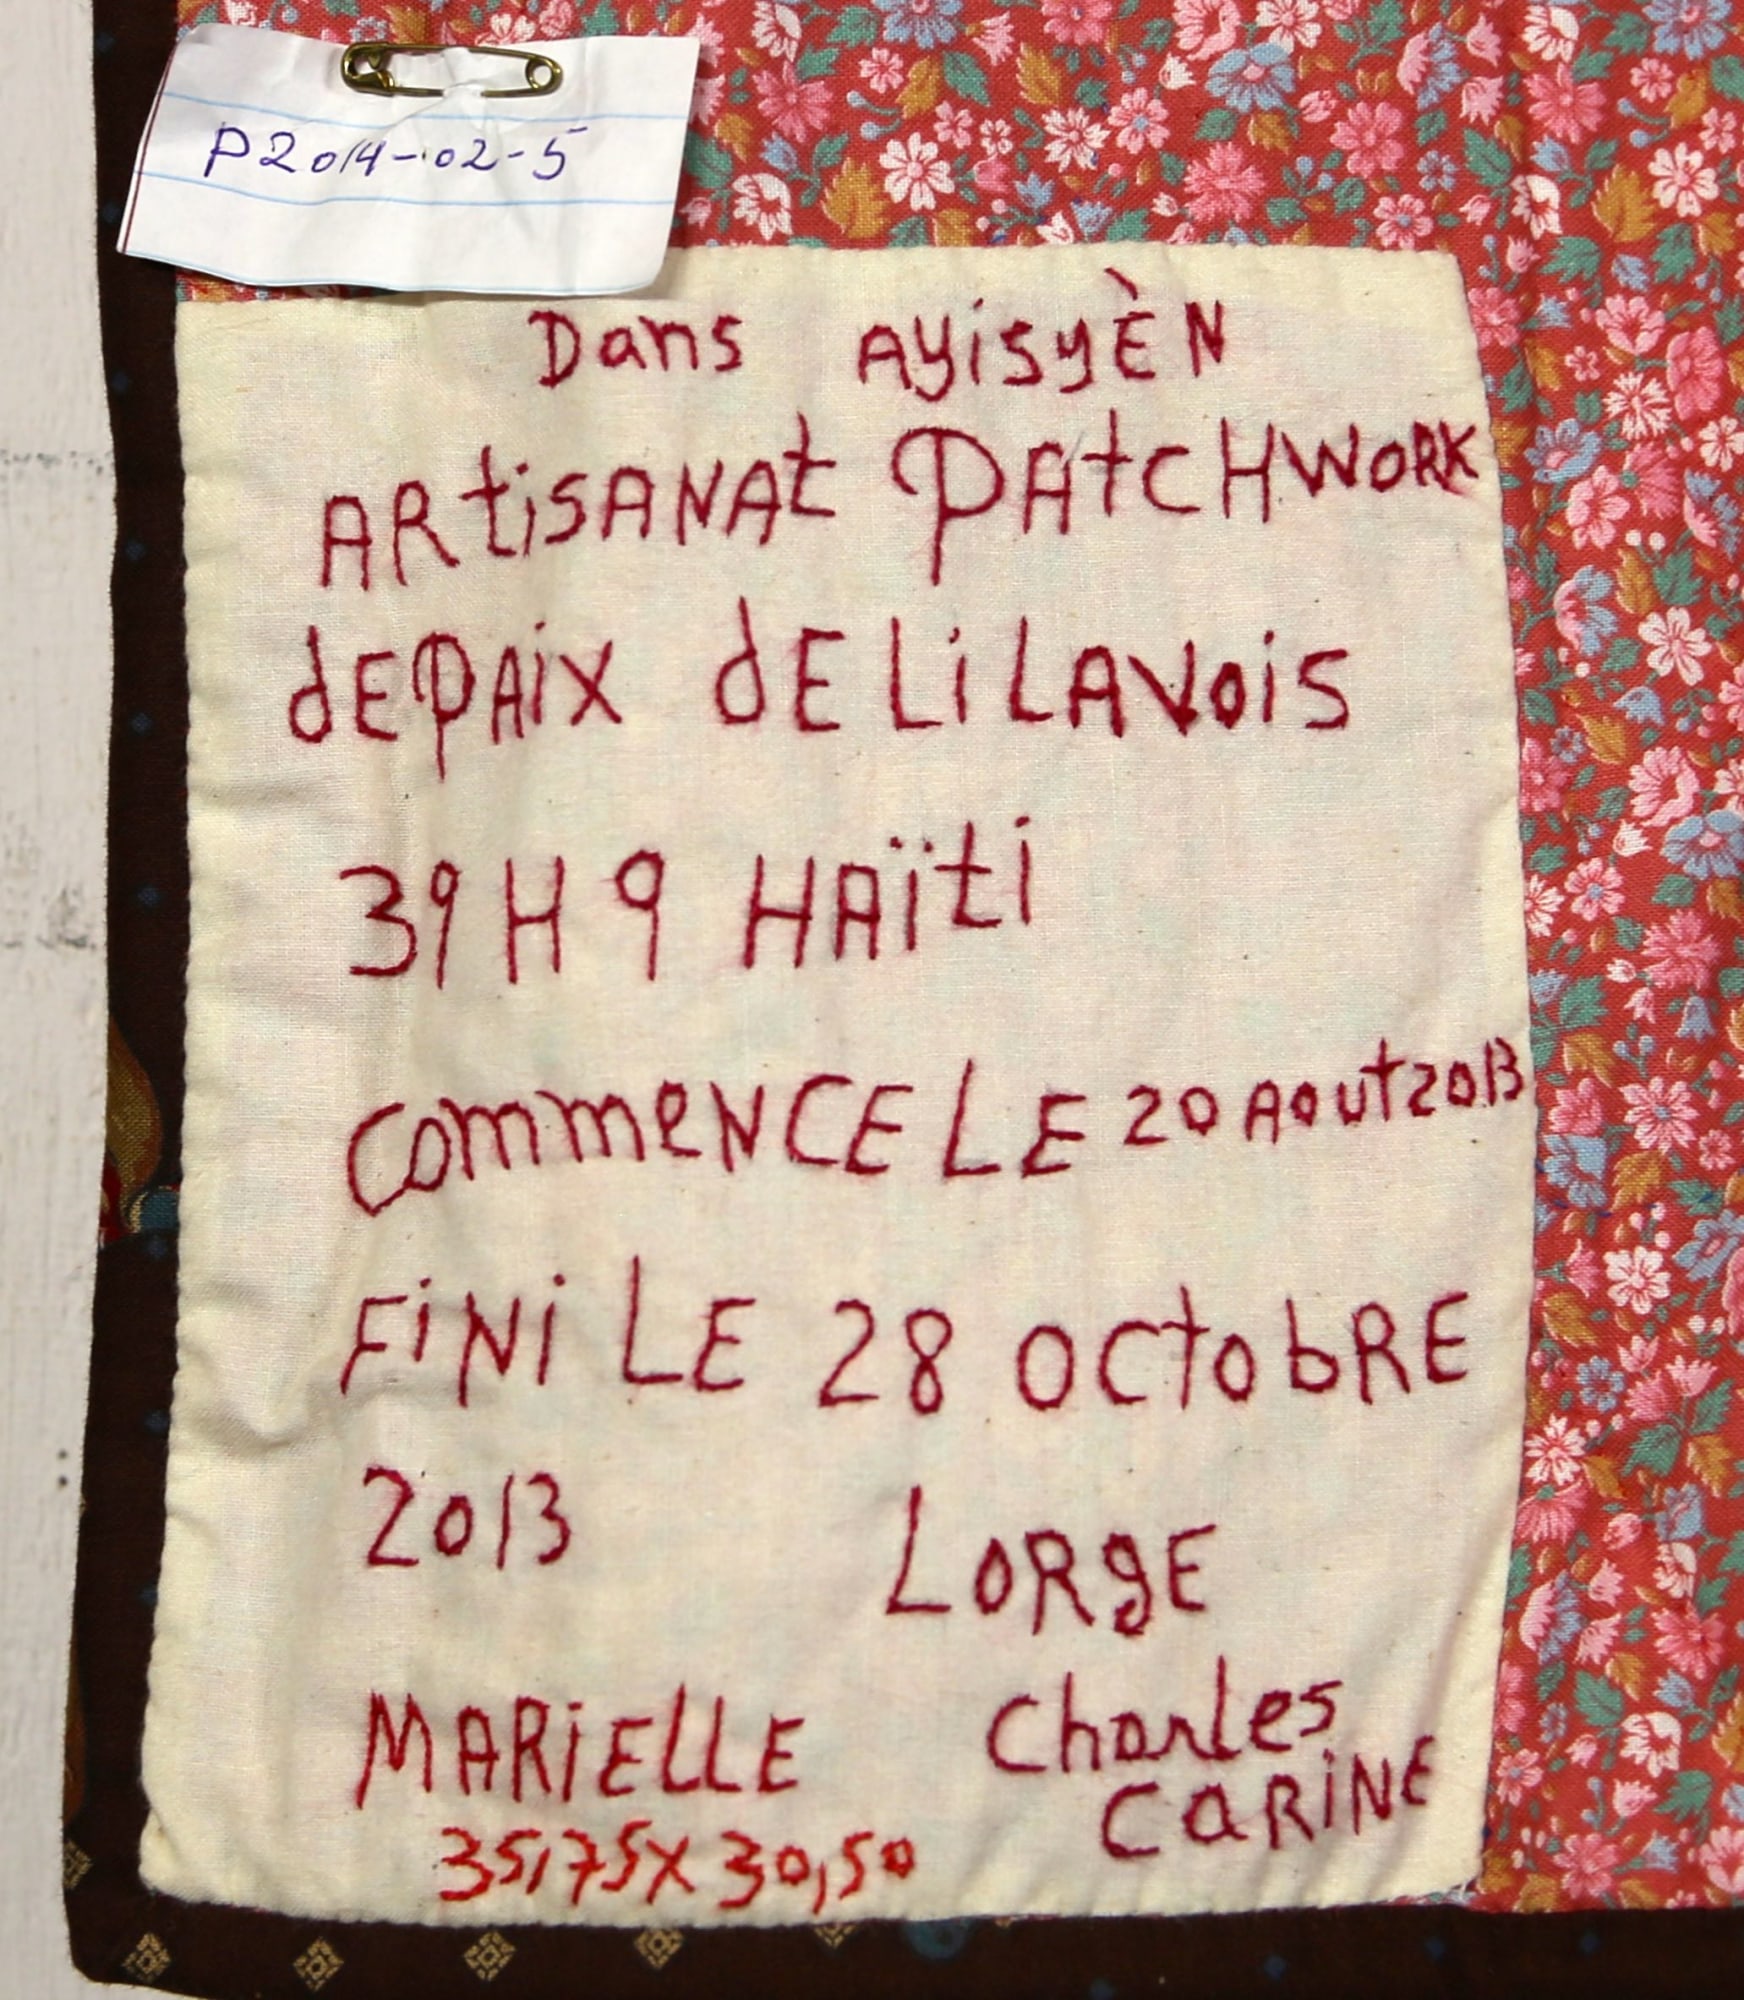 P2014-02-5
Dans AyisyÈN
ARtiSANAt PAtCHWORK
dEPAiX dE LiLAVois
39 H 9 HAïti
CommeNCE LE 20 Aout 2013
FiNi LE 28 OCtobRE
2013 LORgE
MARiELLE Charles
CaRiNE
35,75 X 30,50